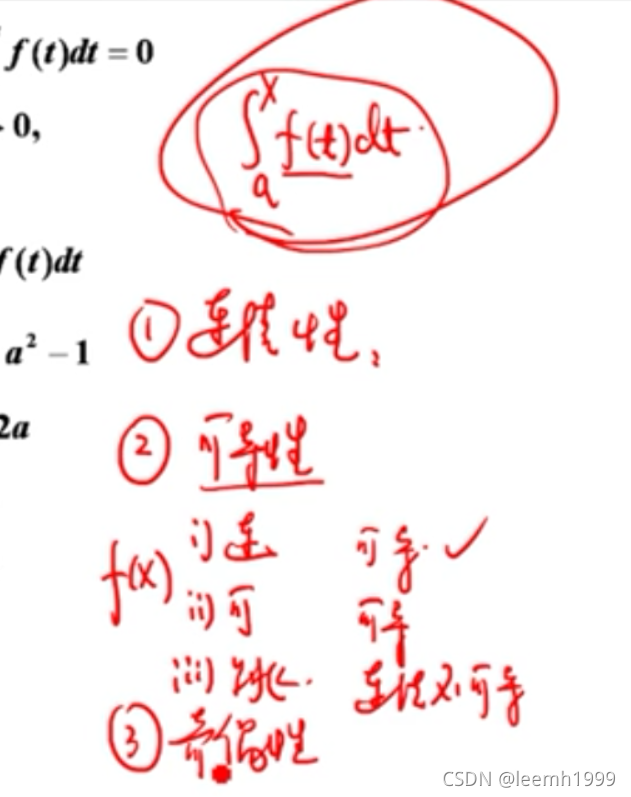 f(t)dt = 0
∫ₐˣ f(t)dt.
0,
f(t)dt
a² − 1
① 连续性.
2a
② 可导性
f(x) i) 连 可导. ✓
ii) 可 可导
iii) 跳 连续不可导
③ 奇偶性
CSDN @leemh1999